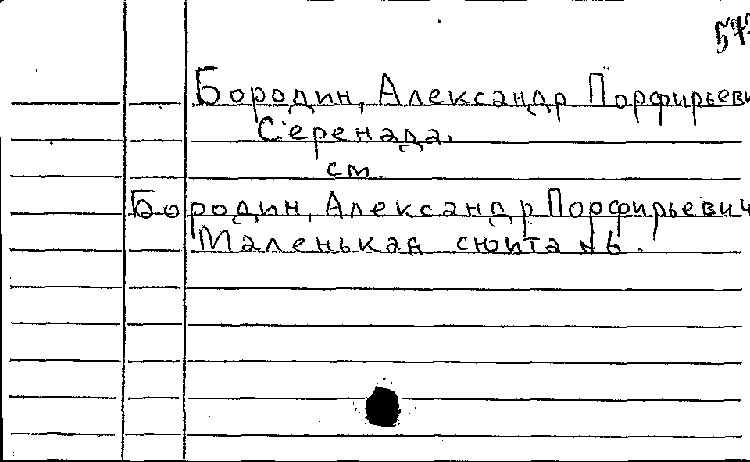 Бородин, Александр Порфирьеви
Серенада.
см.
Бородин, Александр Порфирьевич
Маленькая сюита №6.